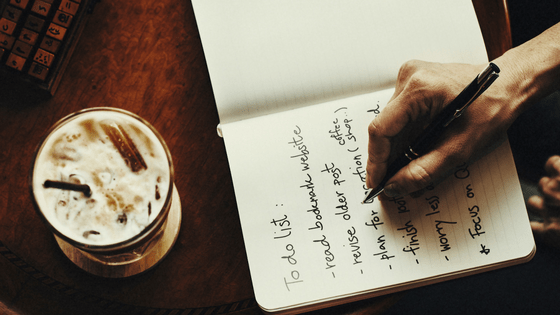 To do list :
- read bookmark website
- revise older post
- plan for (coffee shop..)
- finish
- worry less
& Focus on